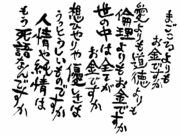 まごころよりも
お金ですか
愛よりも道徳よりも
倫理よりもお金ですか
世の中は全て
お金ですか
思いやりや優しさは
うっとうしいものですか
人情や純情は
もう死語なんですか